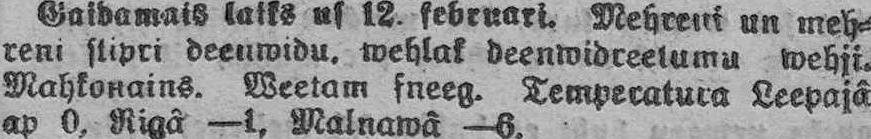 Gaidamais laiks us 12. februari. Mehreni un meh⸗
reni stipri deenwidu, wehlak deenwidreetumu wehji.
Mahkonains. Weetam sneeg. Temperatura Leepajâ
ap 0, Rigâ —1, Malnawâ —6.